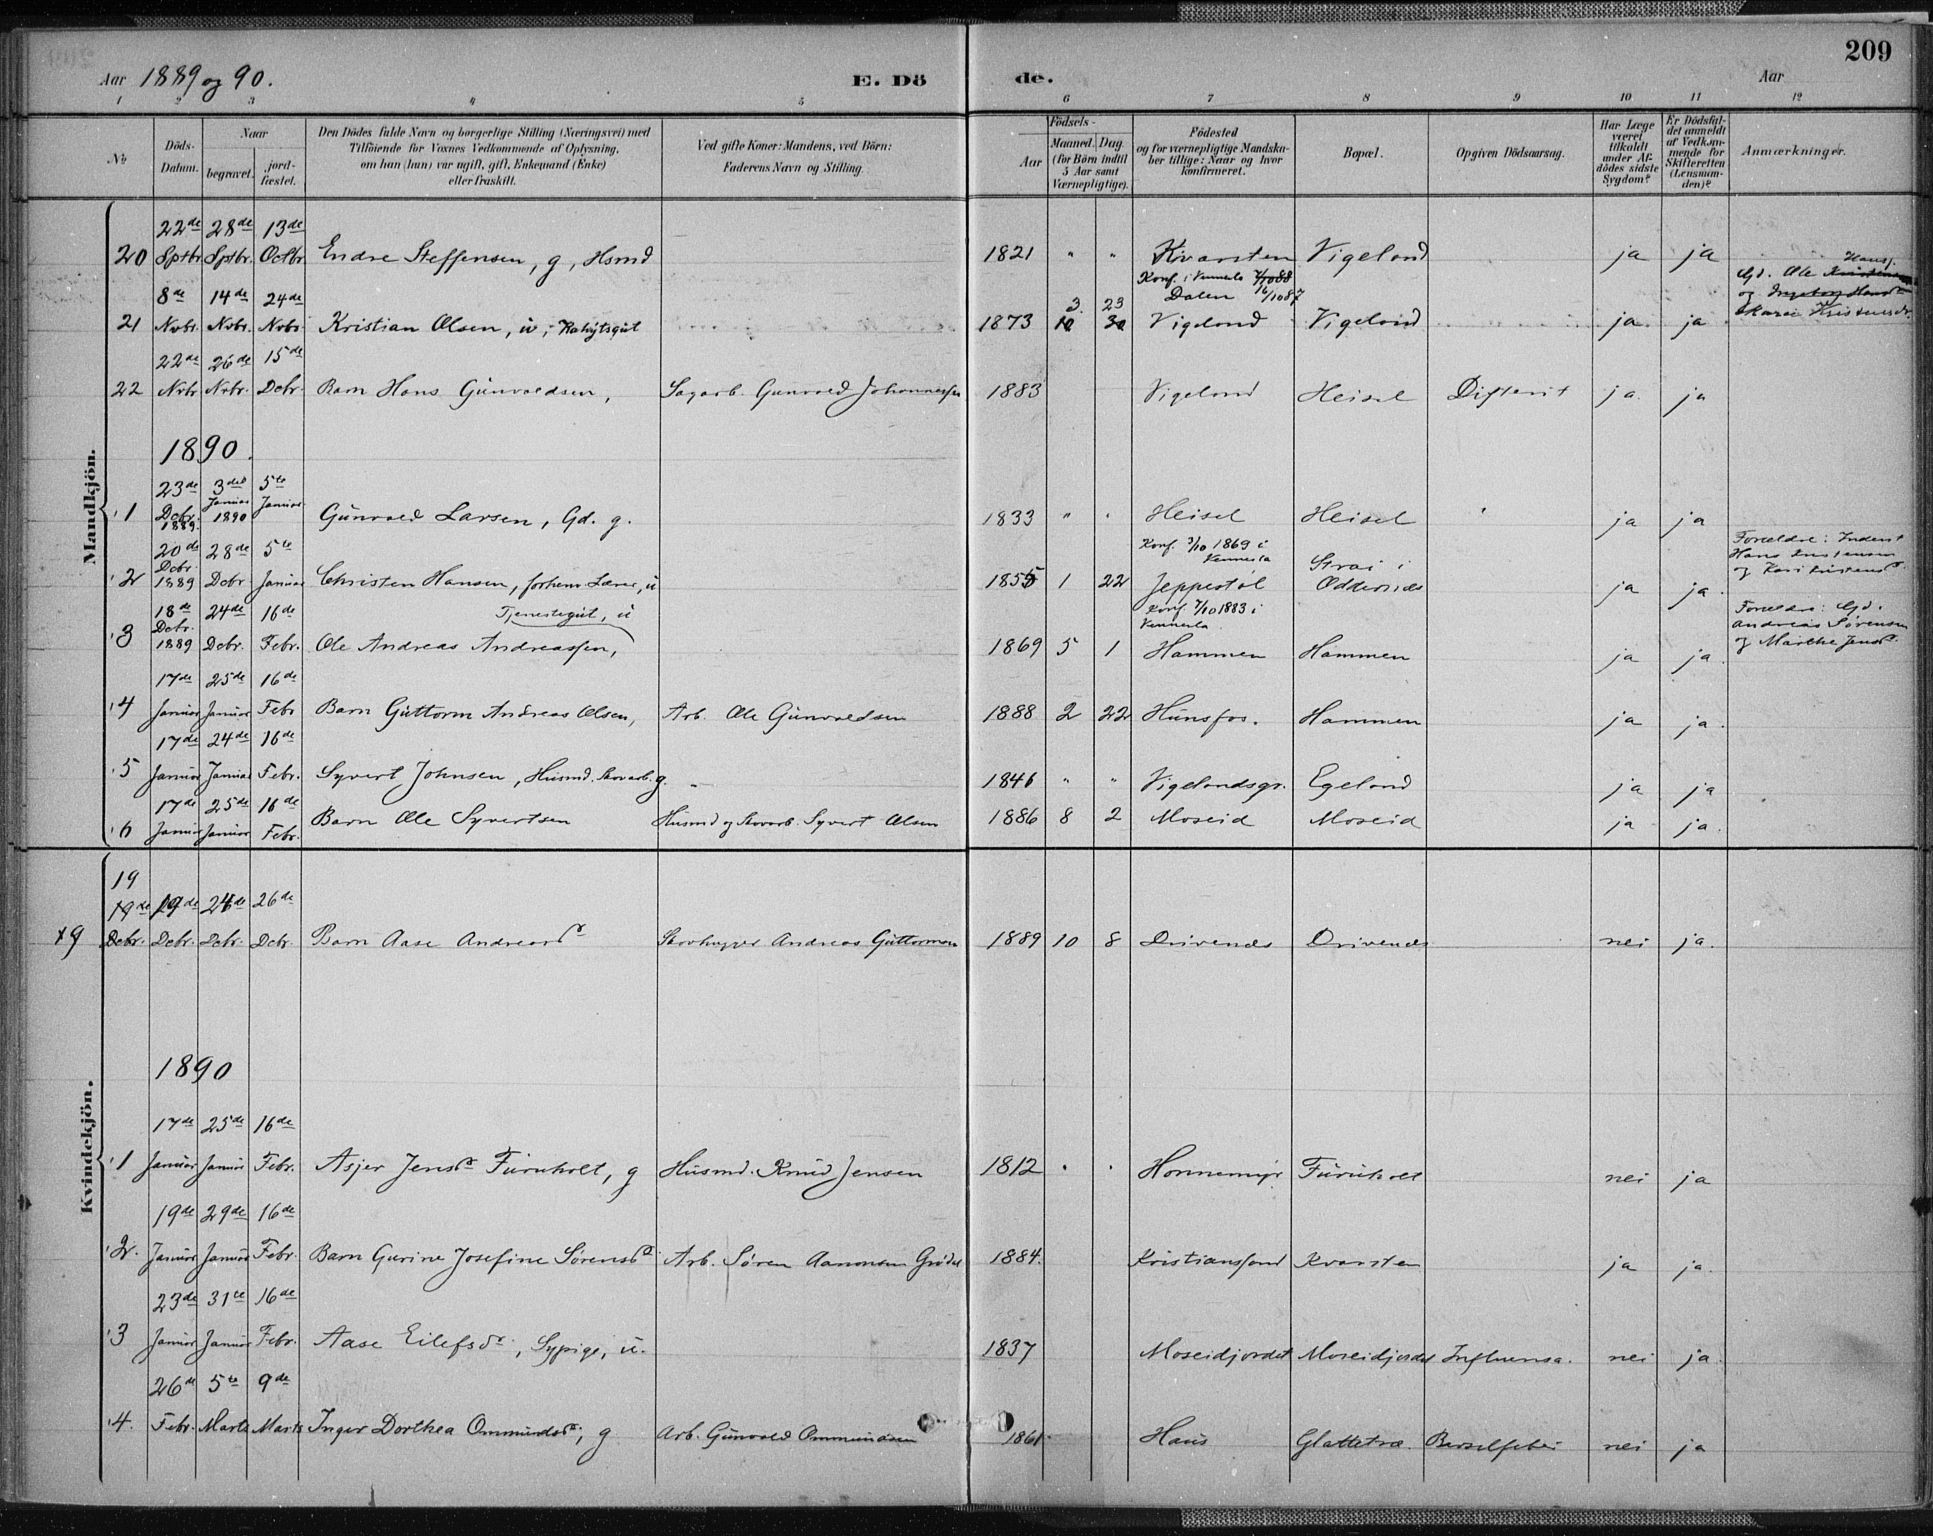 209
Aar 1889 og 90. E. Dö de. Aar
1 2 3 4 5 6 7 8 9 10 11 12
No
Döds-Datum.
Naar begravet. jordfæstet.
Den Dödes fulde Navn og borgerlige Stilling (Næringsvei) med
Tilföiende for Voxnes Vedkommende af Oplysning,
om han (hun) var ugift, gift, Enkemand (Enke)
eller fraskilt.
Ved gifte Koner: Mandens, ved Börn:
Faderens Navn og Stilling.
Födsels-
Aar Maaned. Dag.
(for Börn indtil
5 Aar samt
Værnepligtige).
Födested
og for værnepligtige Mandska-
ber tillige: Naar og hvor
konfirmeret.
Bopæl.
Opgiven Dödsaarsag.
Har Læge
været
tilkaldt
under Af-
dödes sidste
Sygdom?
Er Dödsfal-
det anmeldt
af Vedkom-
mende for
Skifteretten
(Lensman-
den)?
Anmærkninger.
Mandkjön.
22de 28de 13de
20 Sptbr. Sptbr. Octbr. Endre Steffensen, g, Hsmd 1821 " " Kvarsten Vigeland ja ja
Konf. i Vennesla
Dalen 16/10 87
Gd. Ole Hansj.
og Karen Kristensdr.
8de 14de 24de
21 Nvbr. Nvbr. Nvbr. Kristian Olsen, ü, 1873 3 10 23 30 Vigeland Vigeland ja ja
22de 26de 15de
22 Nvbr Nvbr. Dcbr. Barn Hans Günvaldsen, Sagarb. Gunvald Johannessen 1883 Vigeland Heisel Difterit ja ja
1890.
23de 3die 5te
1 Dcbr. 1889. Januar 1890 Januar Günvald Larsen, Gd. g. 1833 " " Heisel Heisel ja ja
Konf. 3/10 1869 i Vennesla
20de 28de 5te
2 Dcbr. 1889 Dcbr. Januar Christen Hansen, forhen Lærer, ü 1855 1 22 Jeppestøl Strai i Oddernæs ja ja
Forældre: Inderst
Hans
og Kari
Konf. 7/10 1883 i Vennesla.
18de 24de 16de Tjenestegüt, ü
3 Dcbr. 1889 Dcbr. Febr. Ole Andreas Andreassen, 1869 5 1 Hammen Hammen ja ja.
Forældre: Gd.
Andreas Sørensen
og Marthe Jensdr.
17de 25de 16de
4 Januar Januar Febr Barn Güttorm Andreas Olsen, Arb. Ole Günvaldsen 1888 2 22 Hünsfos. Hammen ja ja.
17de 24de 16de
5 Januar Januar Febr. Syvert Johnsen, Husmd. Skovarb. g. 1846 " " Vigelandsgr. Egeland ja ja
17de 25de 16de
6 Januar Januar Febr. Barn Ole Syvertsen Husmd og Skovarb. Syvert Olsen 1886 8 2 Moseid Moseid ja ja.
Kvindekjön.
19
19de 19de 24de 26de
19 Dcbr. Dcbr. Dcbr. Dcbr. Barn Aase Andreasdr Skovhugger Andreas Güttormsen 1889 10 8 Drivenes Drivenes nei ja.
1890
17de 25de 16de
1 Januar Januar Febr. Asjer Jensdr Füruholt, g Hüsmd. Knüd Jensen 1812 " " Honnemyr Füruholt nei ja
19de 29de 16de
2. Januar Januar Febr. Barn Gurine Josefine Sørensdr Arb. Søren Aanonsen 1884. Kristianssand Kvarsten ja ja.
23de 31te 16de
3 Januar Januar Febr. Aase Eilefsdr, Sypige, ü. 1837 Moseidjordet Moseidjordet Influensa. nei ja.
26de 5te 9de
4. Febr. Marts Marts Inger Dorthea Ommundsdr, g Arb. Günvald Ommundsen 1861 Haus Glattetræ Barselfeber nei ja